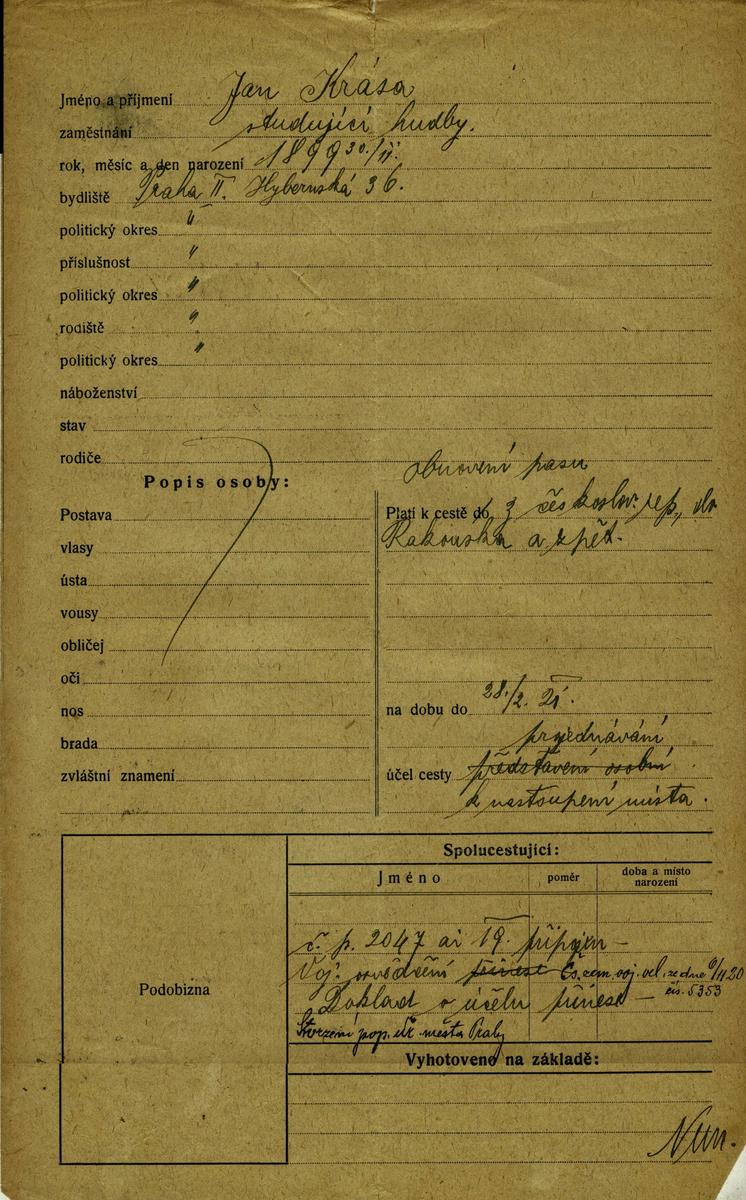 Jméno a příjmení Jan Krása
zaměstnání studující hudby.
rok, měsíc a den narození 1899 30./11.
bydliště Praha II. Hybernská 36.
politický okres "
příslušnost "
politický okres "
rodiště "
politický okres "
náboženství
stav
rodiče
obnovení pasu
Popis osoby:
Postava
vlasy
ústa
vousy
obličej
oči
nos
brada
zvláštní znamení
Platí k cestě do z českoslov. rep., do
Rakouska a zpět.
na dobu do 28./2. 21.
projednávání
účel cesty představení osobní
k nastoupení místa.
Podobizna
Spolucestující:
Jméno poměr doba a místo narození
č. p. 2047 ai 19. připojen —
Voj. osvědčení přinese Čs. zem. voj. vel. ze dne 9/11 20
čís. 5353
Doklad o účelu přinese —
Stvrzení pop. úř. města Prahy
Vyhotoveno na základě: